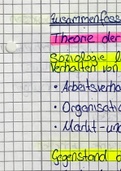 Zusammenfas
Theorie der
Soziologie
Verhalten von
• Arbeitsverha
• Organisatio
• Markt-un
Gegenstand d